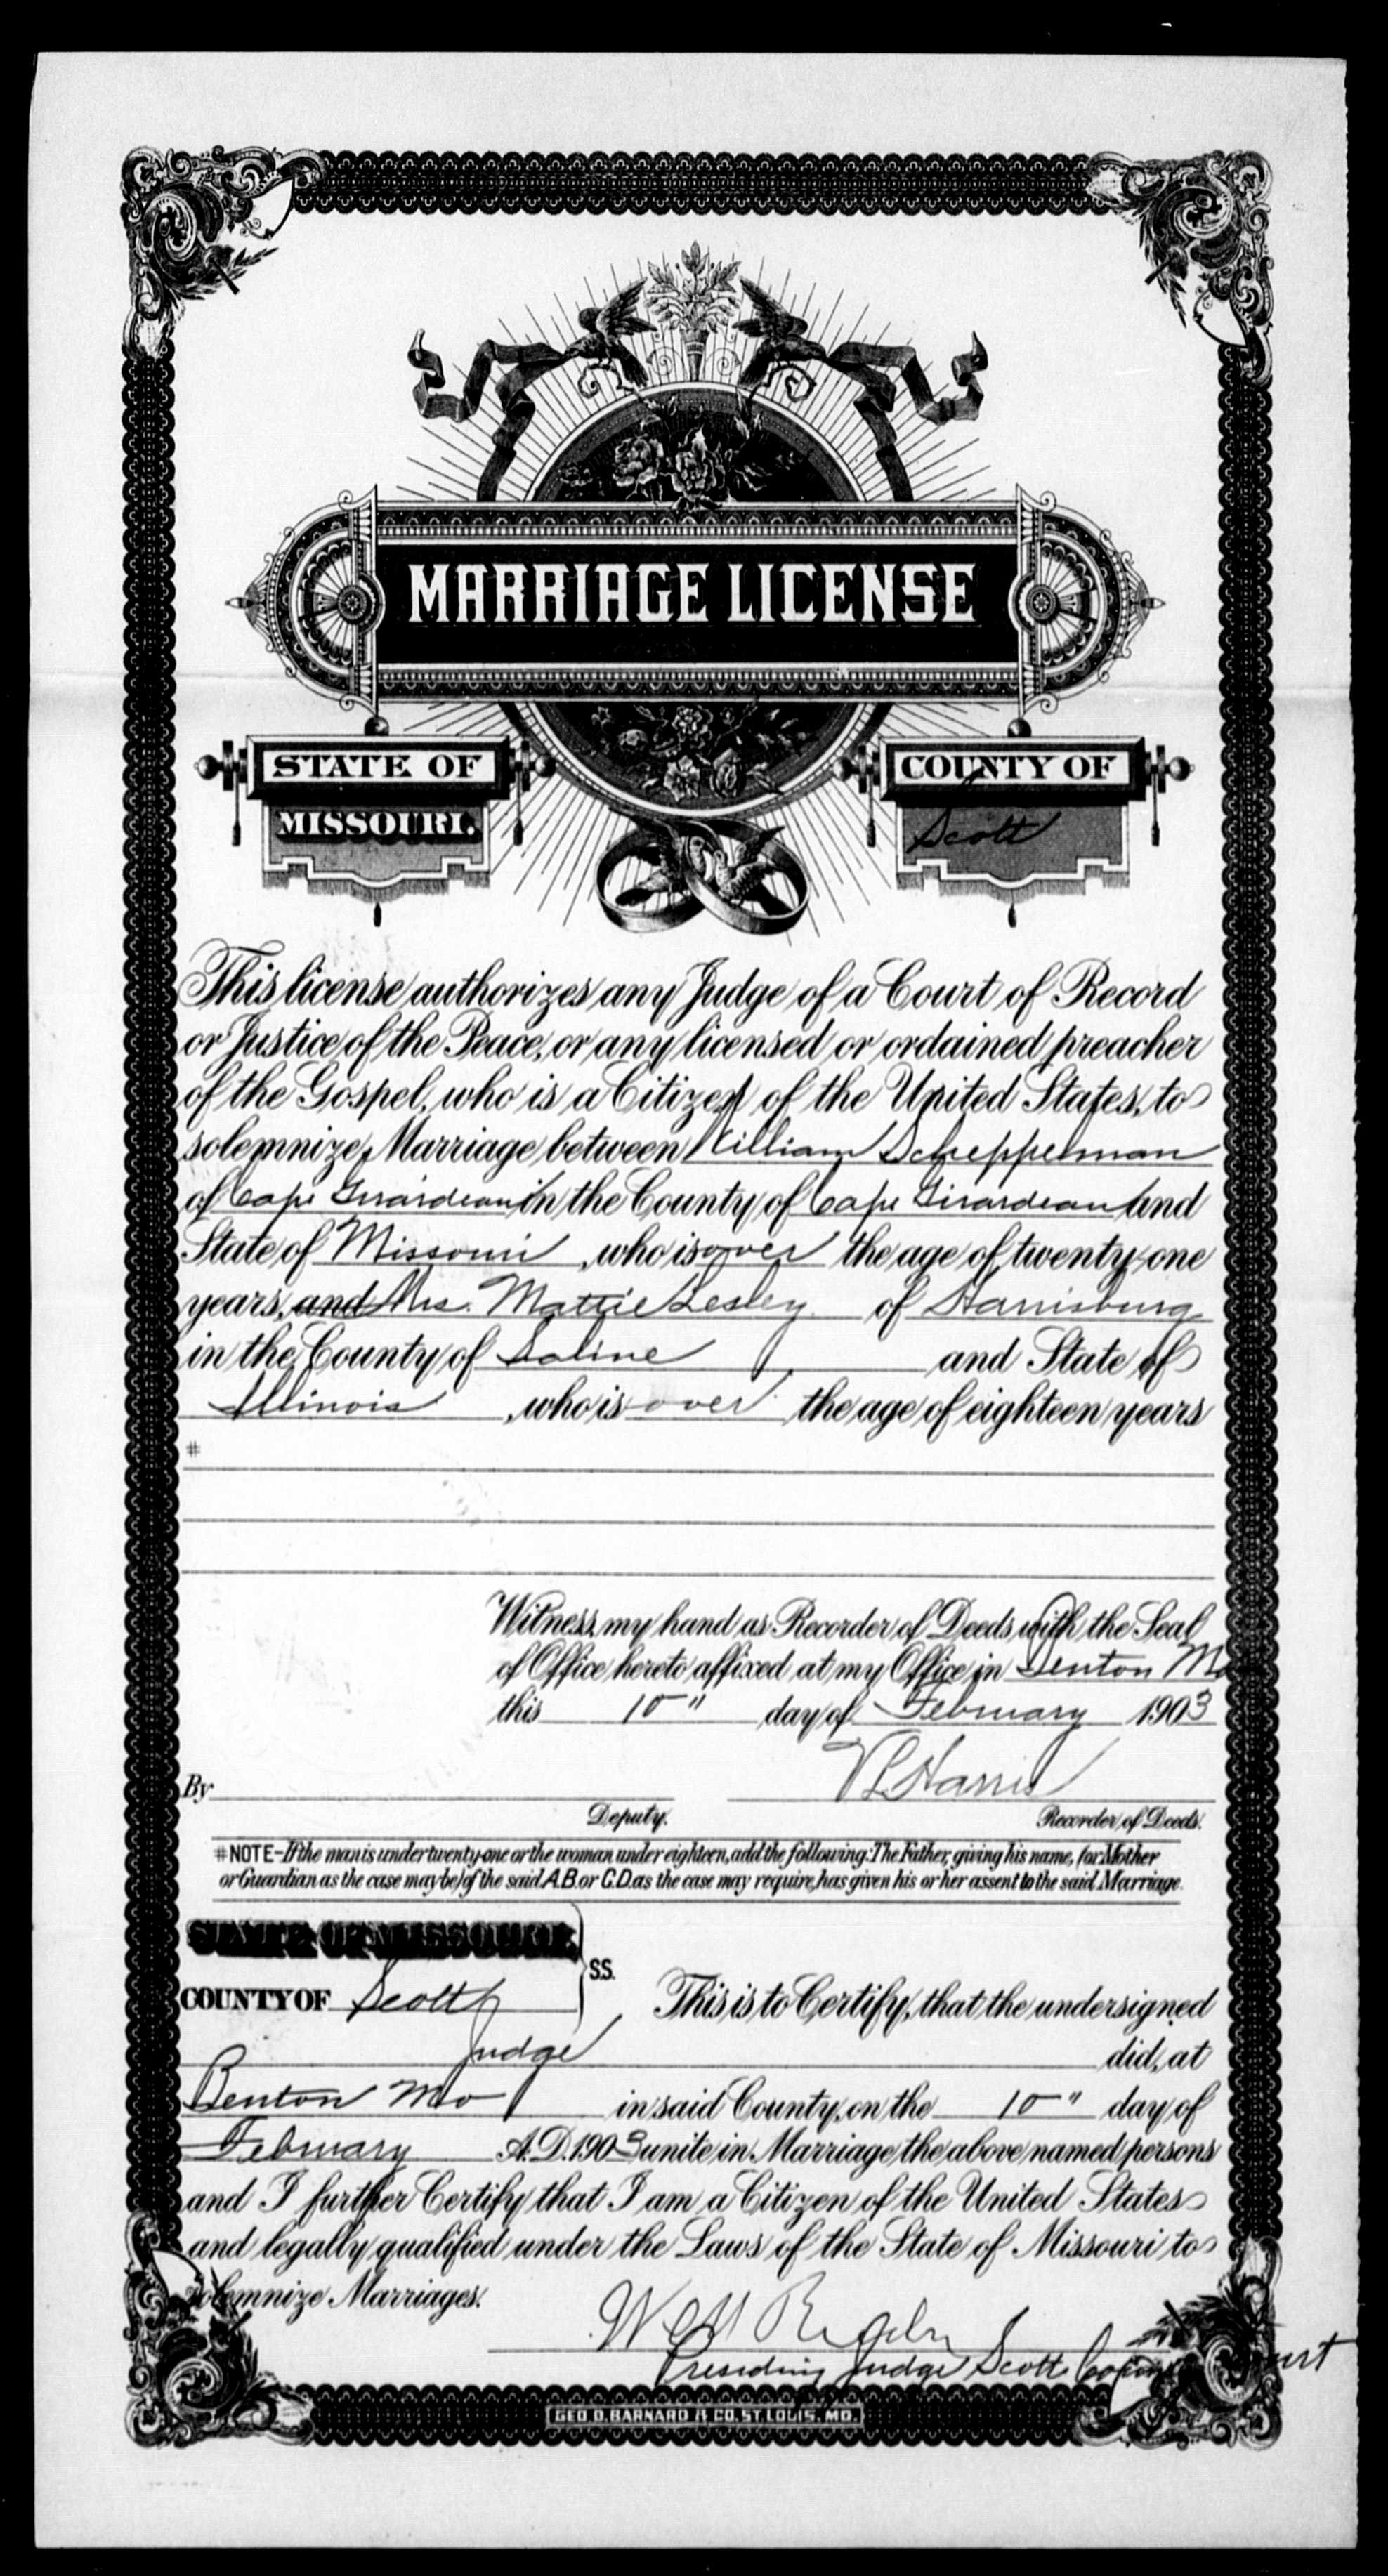 MARRIAGE LICENSE
STATE OF
MISSOURI.
COUNTY OF
Scott
This license authorizes any Judge of a Court of Record
or Justice of the Peace, or any licensed or ordained preacher
of the Gospel, who is a Citizen of the United States, to
solemnize Marriage between William Scheppelman
of Cape Girardeau in the County of Cape Girardeau and
State of Missouri, who is over the age of twenty-one
years, and Mrs. Mattie Lesley of Harrisburg
in the County of Saline and State of
Illinois, who is over the age of eighteen years
#
Witness my hand as Recorder of Deeds, with the Seal
of Office hereto affixed at my Office in Benton Mo
this 10" day of February 1903
Harris
By
Deputy. Recorder of Deeds.
#NOTE-If the man is under twenty-one or the woman under eighteen, add the following: The Father, giving his name, (or Mother
or Guardian as the case may be) of the said A.B. or C.D. as the case may require, has given his or her assent to the said Marriage.
STATE OF MISSOURI,
COUNTY OF Scott
SS.
This is to Certify, that the undersigned
Judge did, at
Benton Mo in said County, on the 10" day of
February A.D. 1903 unite in Marriage the above named persons
and I further Certify that I am a Citizen of the United States
and legally qualified under the Laws of the State of Missouri to
solemnize Marriages.
Presiding Judge Scott County Court
GEO. D. BARNARD & CO. ST. LOUIS, MO.